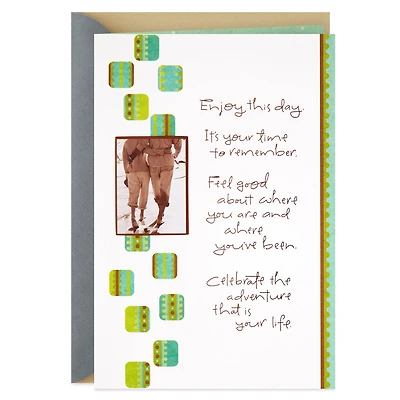 Enjoy this day.
It's your time
to remember.
Feel good
about where
you are and
where
you've been.
Celebrate the
adventure
that is
your life.